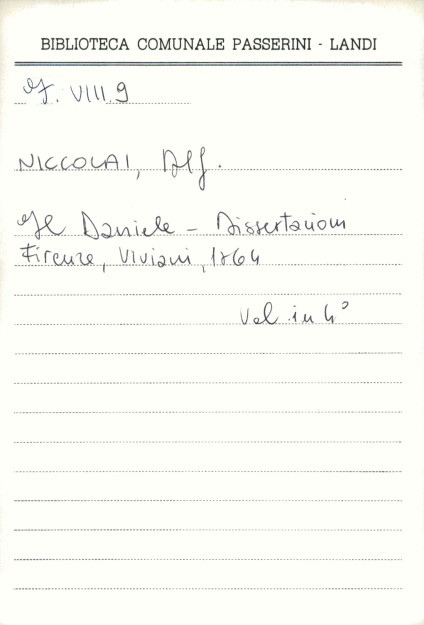 BIBLIOTECA COMUNALE PASSERINI - LANDI
VIII.9
NICCOLAI, Alf.
Il Daniele - Dissertazioni
Firenze, Viviani, 1764
Vol. in 4°